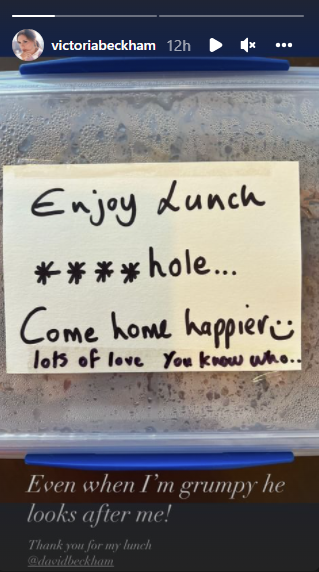 victoriabeckham 12h
Enjoy Lunch
****hole...
Come home happier
lots of love You know who..
Even when I'm grumpy he
looks after me!
Thank you for my lunch
@davidbeckham